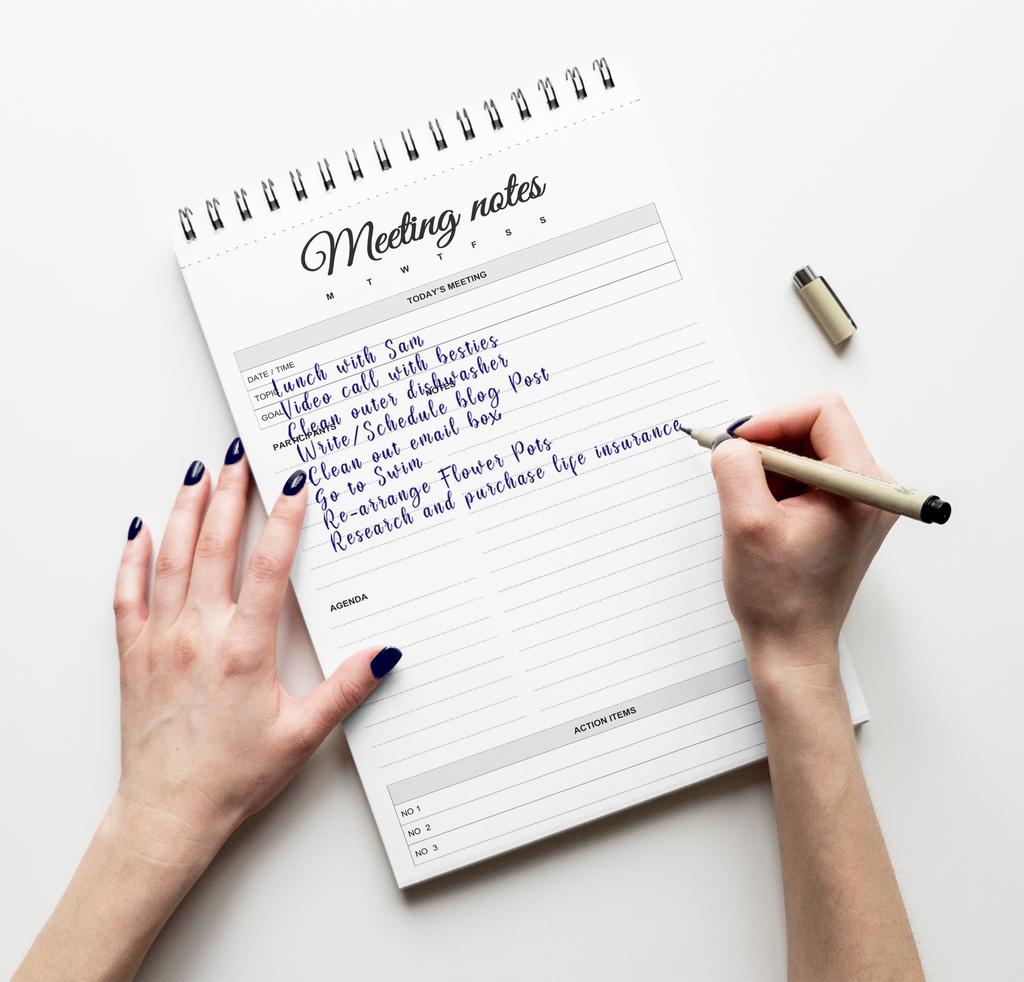 Meeting notes
M T W T F S S
TODAY'S MEETING
DATE / TIME
TOPIC
GOAL
Lunch with Sam
Video call with besties
Clean outer dishwasher
NOTES
PARTICIPANTS
Write/Schedule blog Post
Clean out email box
Go to Swim
Re-arrange Flower Pots
Research and purchase life insurance
AGENDA
ACTION ITEMS
NO 1
NO 2
NO 3